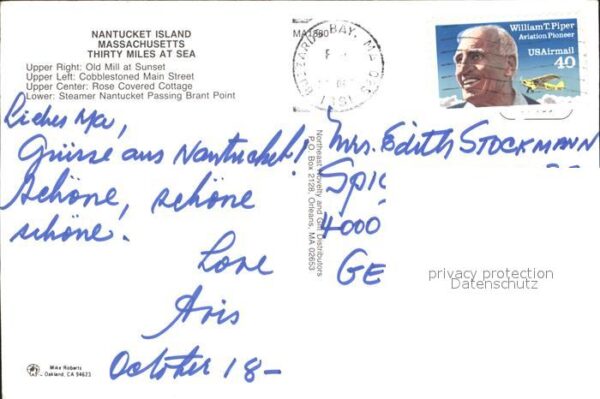 NANTUCKET ISLAND
MASSACHUSETTS
THIRTY MILES AT SEA
Upper Right: Old Mill at Sunset
Upper Left: Cobblestoned Main Street
Upper Center: Rose Covered Cottage
Lower: Steamer Nantucket Passing Brant Point
Liebes Ma,
Grüsse aus Nantucket!
Schöne, schöne
schöne.
Love
Aris
October 18-
Mike Roberts
Oakland, CA 94623
Northeast Novelty and Gift Distributors
P.O. Box 2128, Orleans, MA 02653
BAY, MA
William T. Piper
Aviation Pioneer
USAirmail
40
Mrs. Edith STOCKMANN
4000
GE
privacy protection
Datenschutz